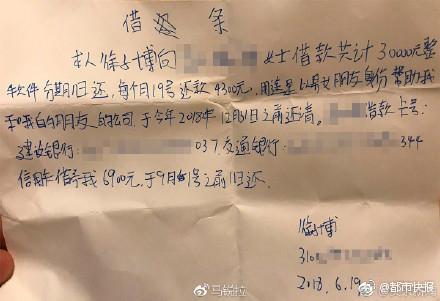 借条
本人徐博向 女士借款共计30000元整
软件分期归还,每个月19号还款4300元,用途是以男女朋友身份帮助我
和我的朋友的公司,于今年2018年12月31日之前还清。 借款卡号:
建设银行: 037,交通银行: 344
信用卡借予我6900元,于9月1号之前归还.
徐博
310
2018.6.19
@马锐拉
@都市快报